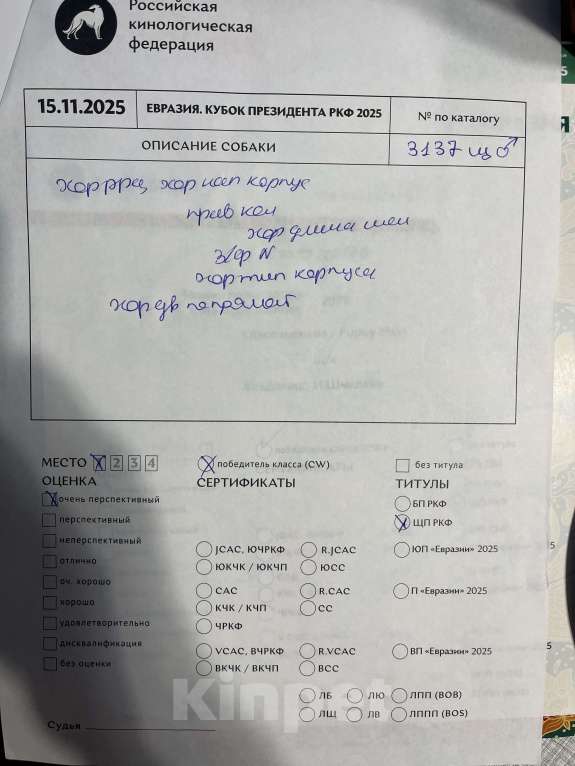 Российская
кинологическая
федерация
15.11.2025
ЕВРАЗИЯ. КУБОК ПРЕЗИДЕНТА РКФ 2025
№ по каталогу
ОПИСАНИЕ СОБАКИ
3137 щ ♂
хор ррц, хор исп корпус
прав кол
хор длина шеи
з/ф N
хор тип корпуса
хор дв по прямой
МЕСТО X 2 3 4
победитель класса (CW)
без титула
ОЦЕНКА
СЕРТИФИКАТЫ
ТИТУЛЫ
очень перспективный
БП РКФ
перспективный
ЩП РКФ
неперспективный
JCAC, ЮЧРКФ
R.JCAC
ЮП «Евразии» 2025
отлично
ЮКЧК / ЮКЧП
ЮСС
оч. хорошо
CAC
R.CAC
П «Евразии» 2025
хорошо
КЧК / КЧП
СС
удовлетворительно
ЧРКФ
дисквалификация
VCAC, ВЧРКФ
R.VCAC
ВП «Евразии» 2025
без оценки
ВКЧК / ВКЧП
ВСС
ЛБ
ЛЮ
ЛПП (BOB)
ЛЩ
ЛВ
ЛППП (BOS)
Судья
Kinpet